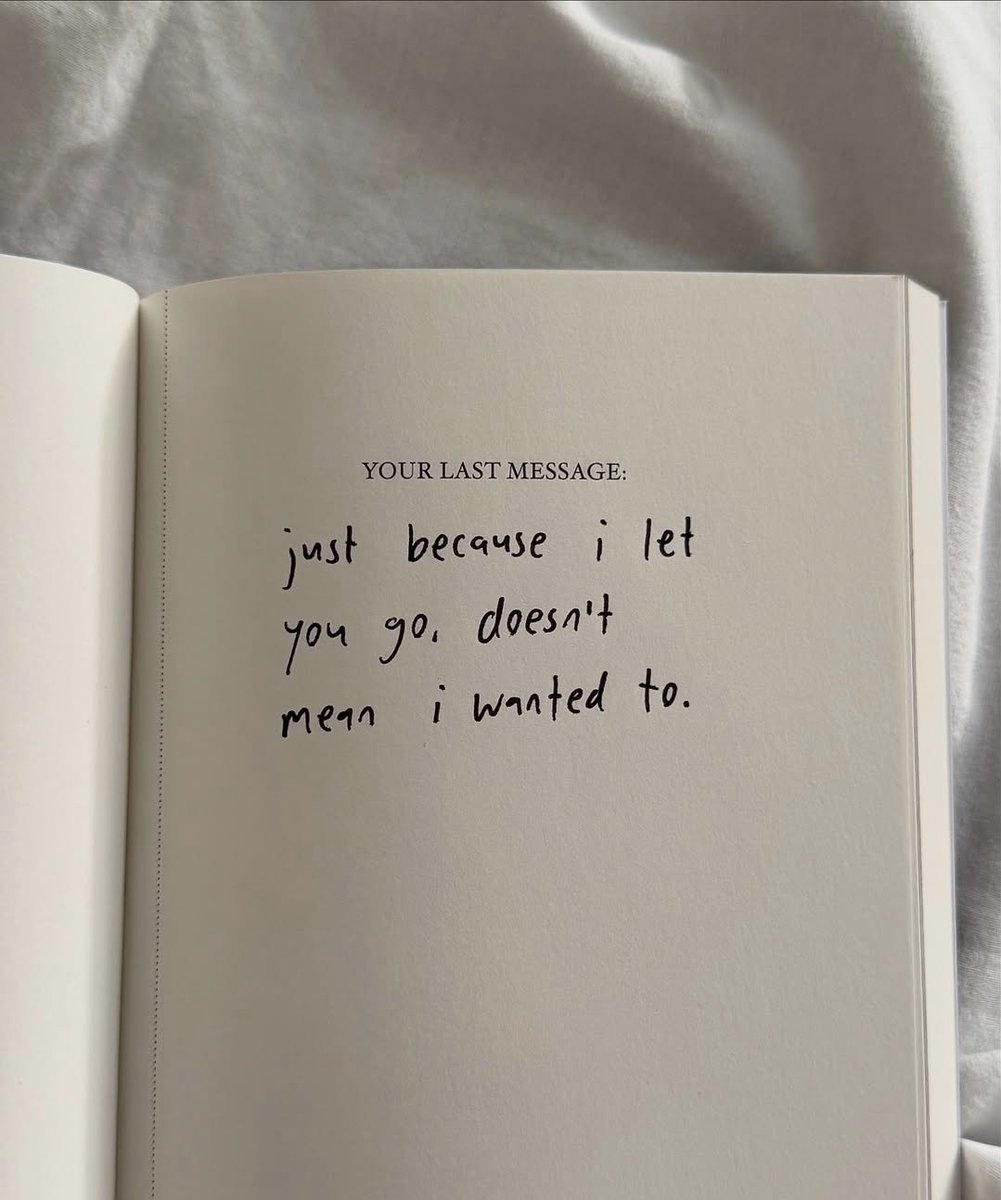 YOUR LAST MESSAGE:
just because i let
you go. doesn't
mean i wanted to.